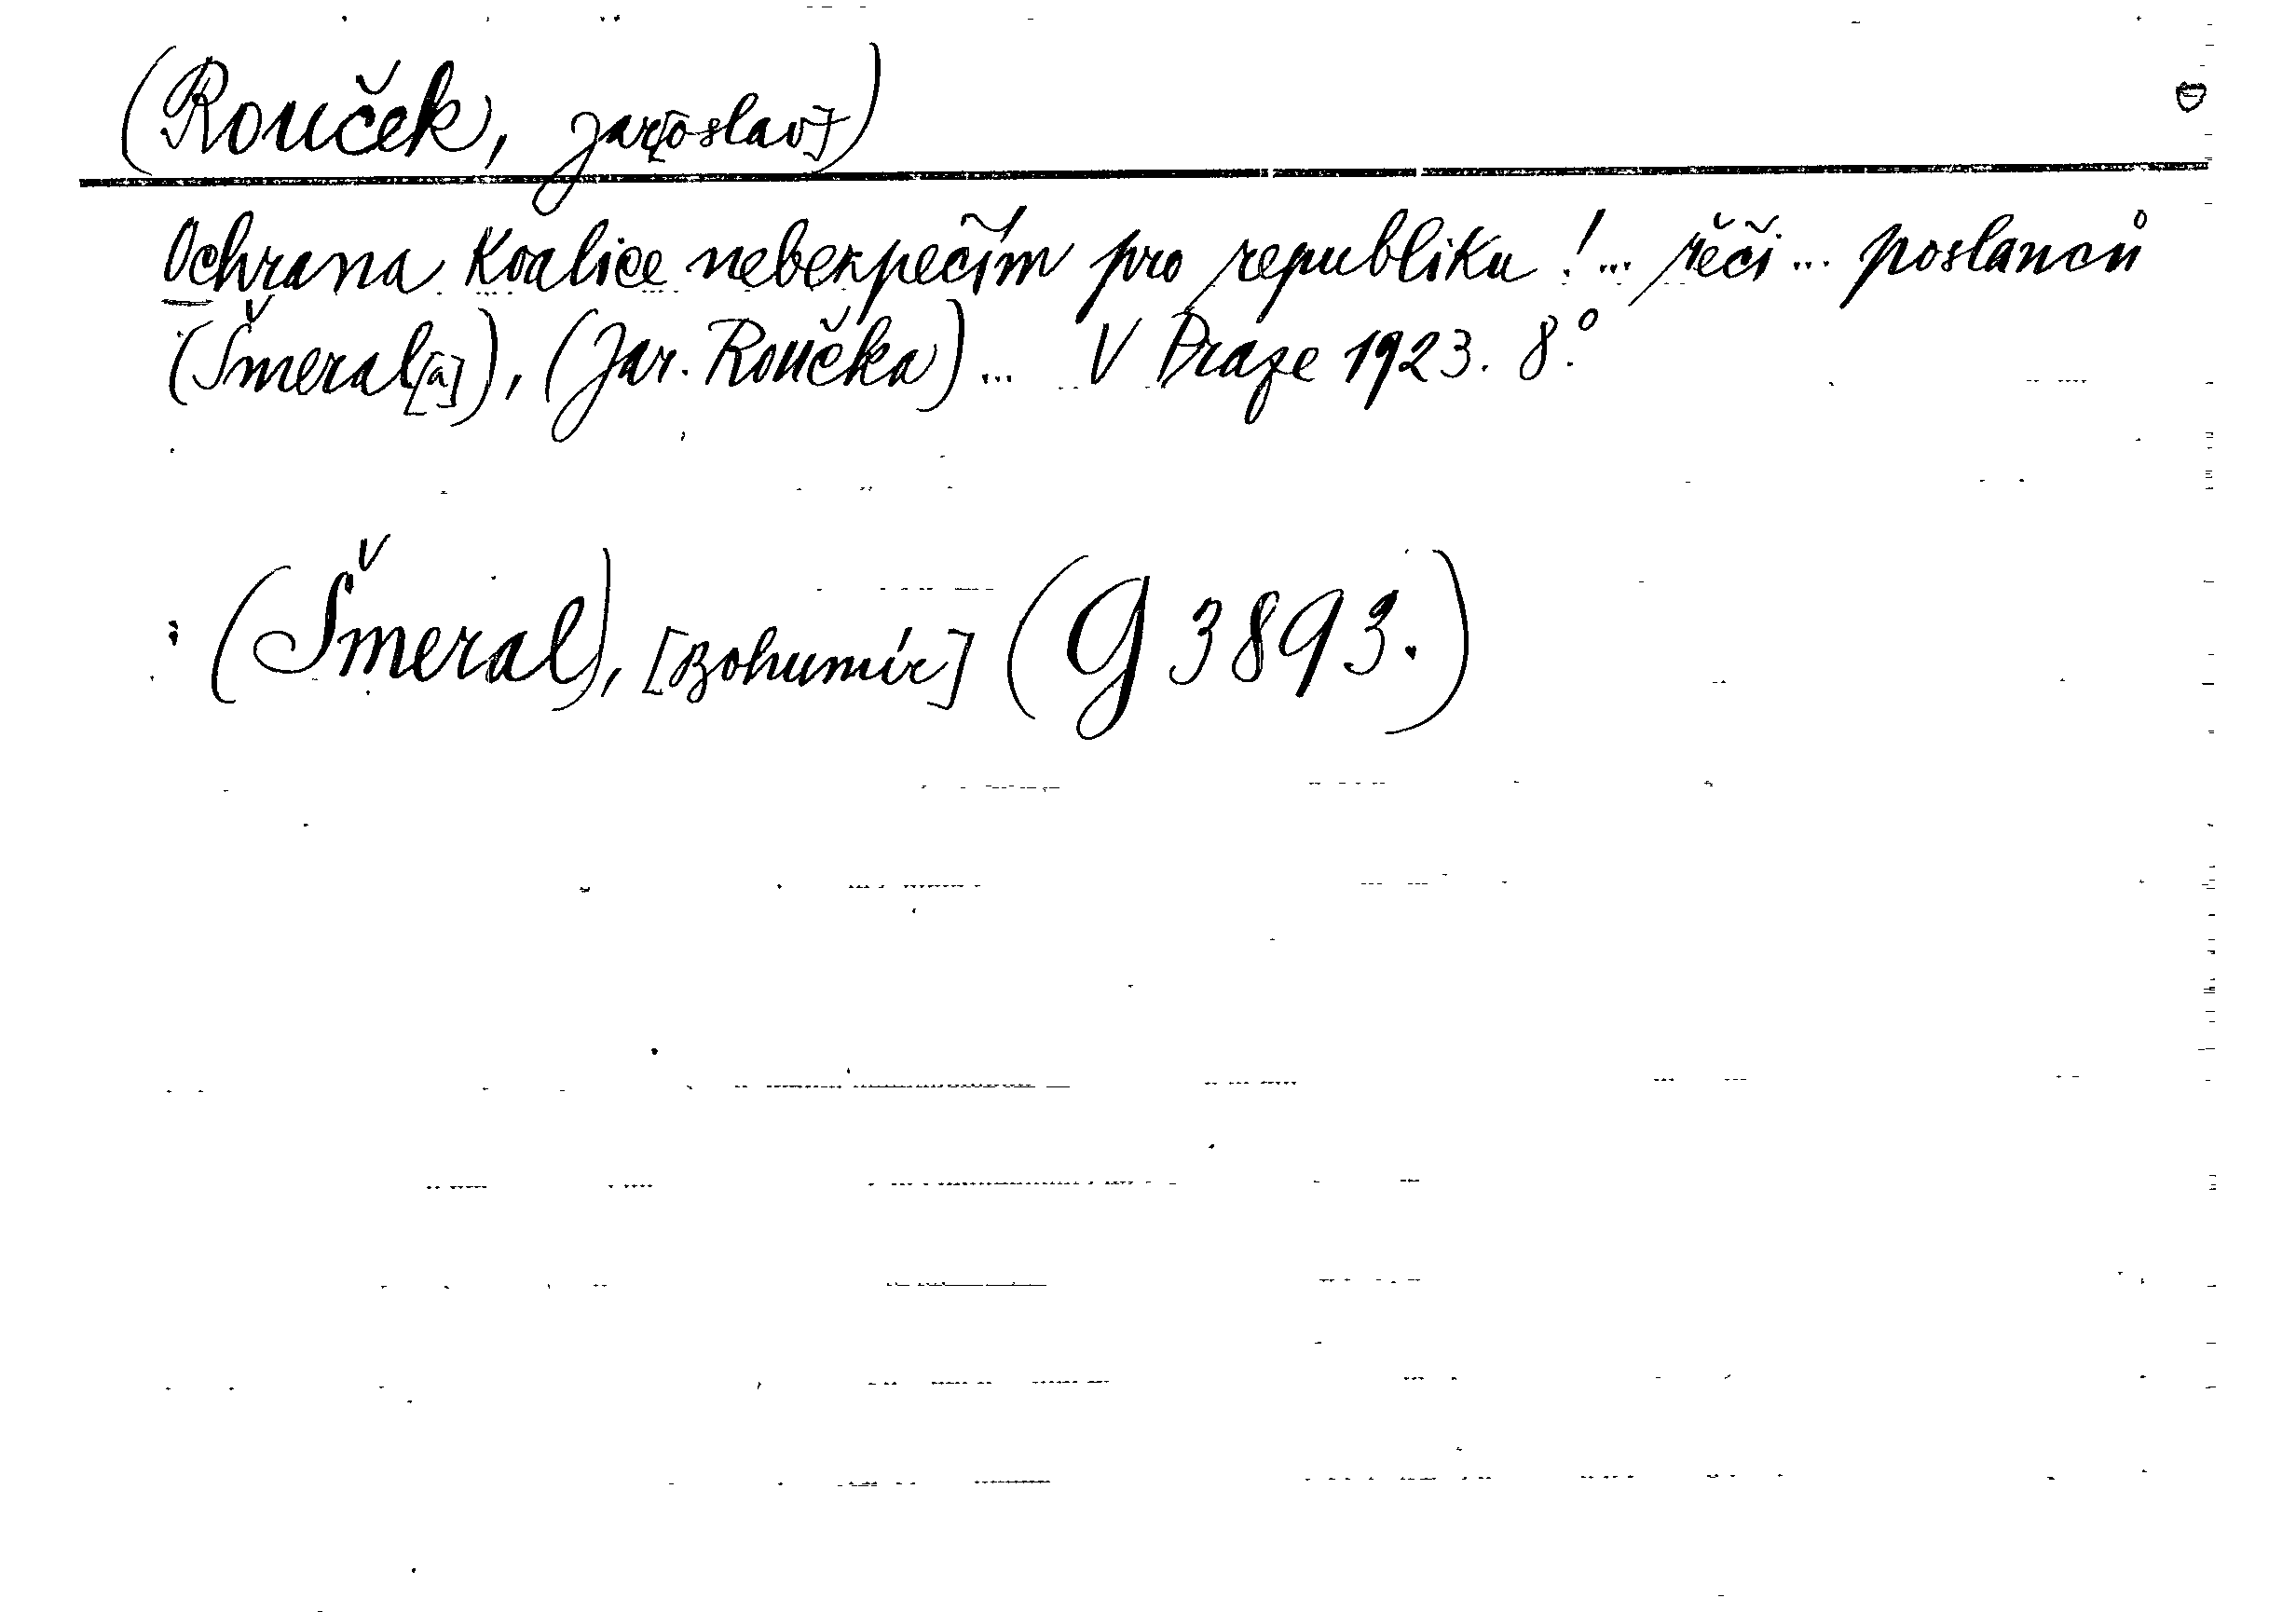 (Rouček, Jar[oslav])
Ochrana Koalice nebezpečím pro republiku!... řeči... poslanců
(Šmeral[a]), (Jar. Roučka)... V Praze 1923. 8°.
(Šmeral), [Bohumír] (G 3893.)